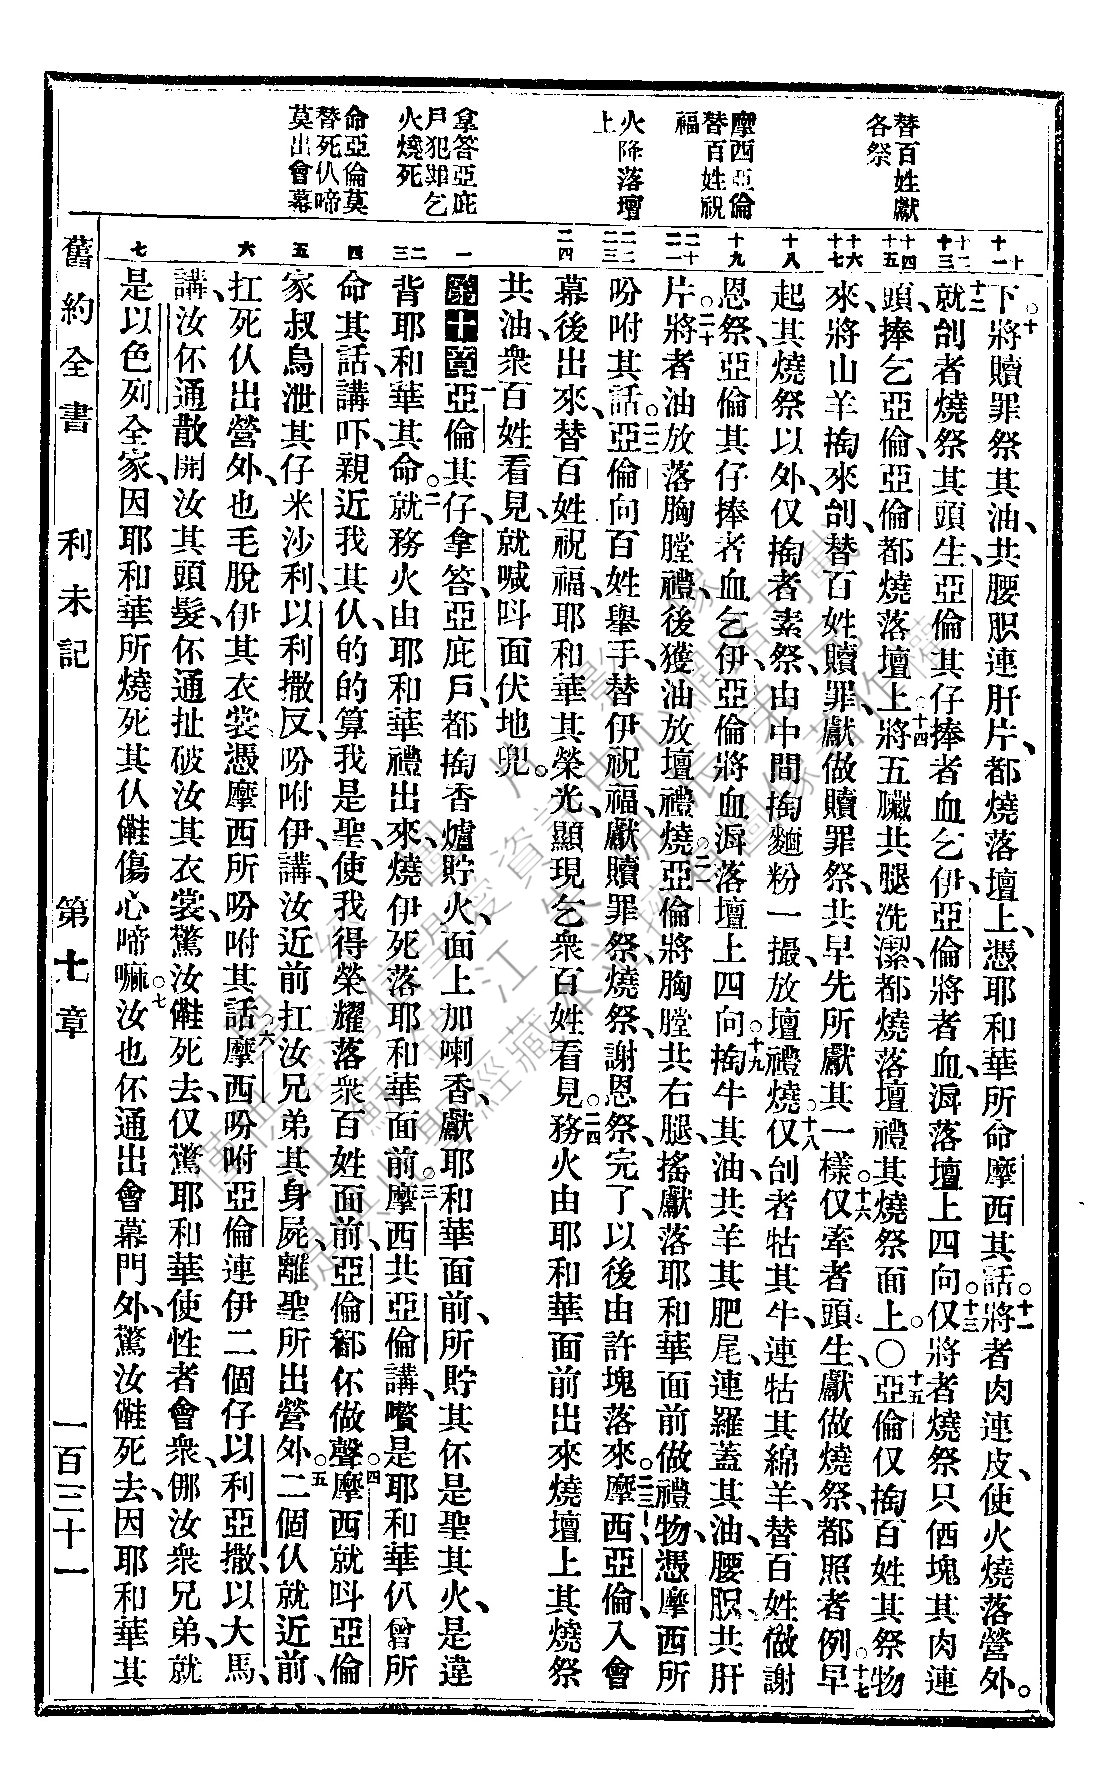 替百姓獻
各祭
摩西亞倫
替百姓祝
福
火降落壇
上
拿答亞庇
戶犯罪乞
火燒死
命亞倫莫
替死仈啼
莫出會幕
下、將贖罪祭其油、共腰䏘連肝片、都燒落壇上、憑耶和華所命摩西其話。十一將者肉連皮、使火燒落營外。
十二就刣者燒祭其頭生、亞倫其仔捧者血乞伊、亞倫將者血、㴙落壇上四向。十三仅將者燒祭只価塊其肉連
頭、捧乞亞倫、亞倫都燒落壇上。十四將五臟共腿洗潔、都燒落壇禮其燒祭面上。〇十五亞倫仅掏百姓其祭物
來、將山羊掏來刣、替百姓贖罪、獻做贖罪祭、共早先所獻其一樣。十六仅牽者頭生、獻做燒祭、都照者例。十七早
起其燒祭以外、仅掏者素祭、由中間掏麵粉一撮、放壇禮燒。十八仅刣者牯其牛、連牯其綿羊、替百姓做謝
恩祭、亞倫其仔捧者血乞伊、亞倫將血㴙落壇上四向。十九掏牛其油、共羊其肥尾、連羅蓋其油、腰䏘、共肝
片。二十將者油放落胸膛禮、後獲油放壇禮燒。二一亞倫將胸膛共右腿、搖獻落耶和華面前做禮物、憑摩西所
吩咐其話。二二亞倫向百姓舉手、替伊祝福、獻贖罪祭、燒祭、謝恩祭、完了、以後由許塊落來。二三摩西亞倫、入會
幕後出來、替百姓祝福、耶和華其榮光、顯現乞衆百姓看見。二四務火由耶和華面前出來、燒壇上其燒祭
共油、衆百姓看見、就喊呌面伏地兜。
第十章 一亞倫其仔、拿答、亞庇戶、都掏香爐貯火、面上加喇香、獻耶和華面前、所貯其伓是聖其火、是違
背耶和華其命。二就務火由耶和華禮出來、燒伊死落耶和華面前。三摩西共亞倫講、嚽是耶和華仈曾所
命其話、講吓、親近我其仈、的的算我是聖、使我得榮耀落衆百姓面前、亞倫都伓做聲。四摩西就呌亞倫
家叔烏泄其仔米沙利、以利撒反、吩咐伊講、汝近前扛汝兄弟其身屍、離聖所出營外。五二個仈就近前、
扛死仈出營外、也毛脫伊其衣裳、憑摩西所吩咐其話。六摩西吩咐亞倫、連伊二個仔以利亞撒、以大馬、
講、汝伓通散開汝其頭髮、伓通扯破汝其衣裳、驚汝𠆧死去、仅驚耶和華使性者會衆、㑚汝衆兄弟、就
是以色列全家、因耶和華所燒死其仈、𠆧傷心啼嘛。七汝也伓通出會幕門外、驚汝𠆧死去、因耶和華其
舊約全書
利未記
第十章
一百三十一